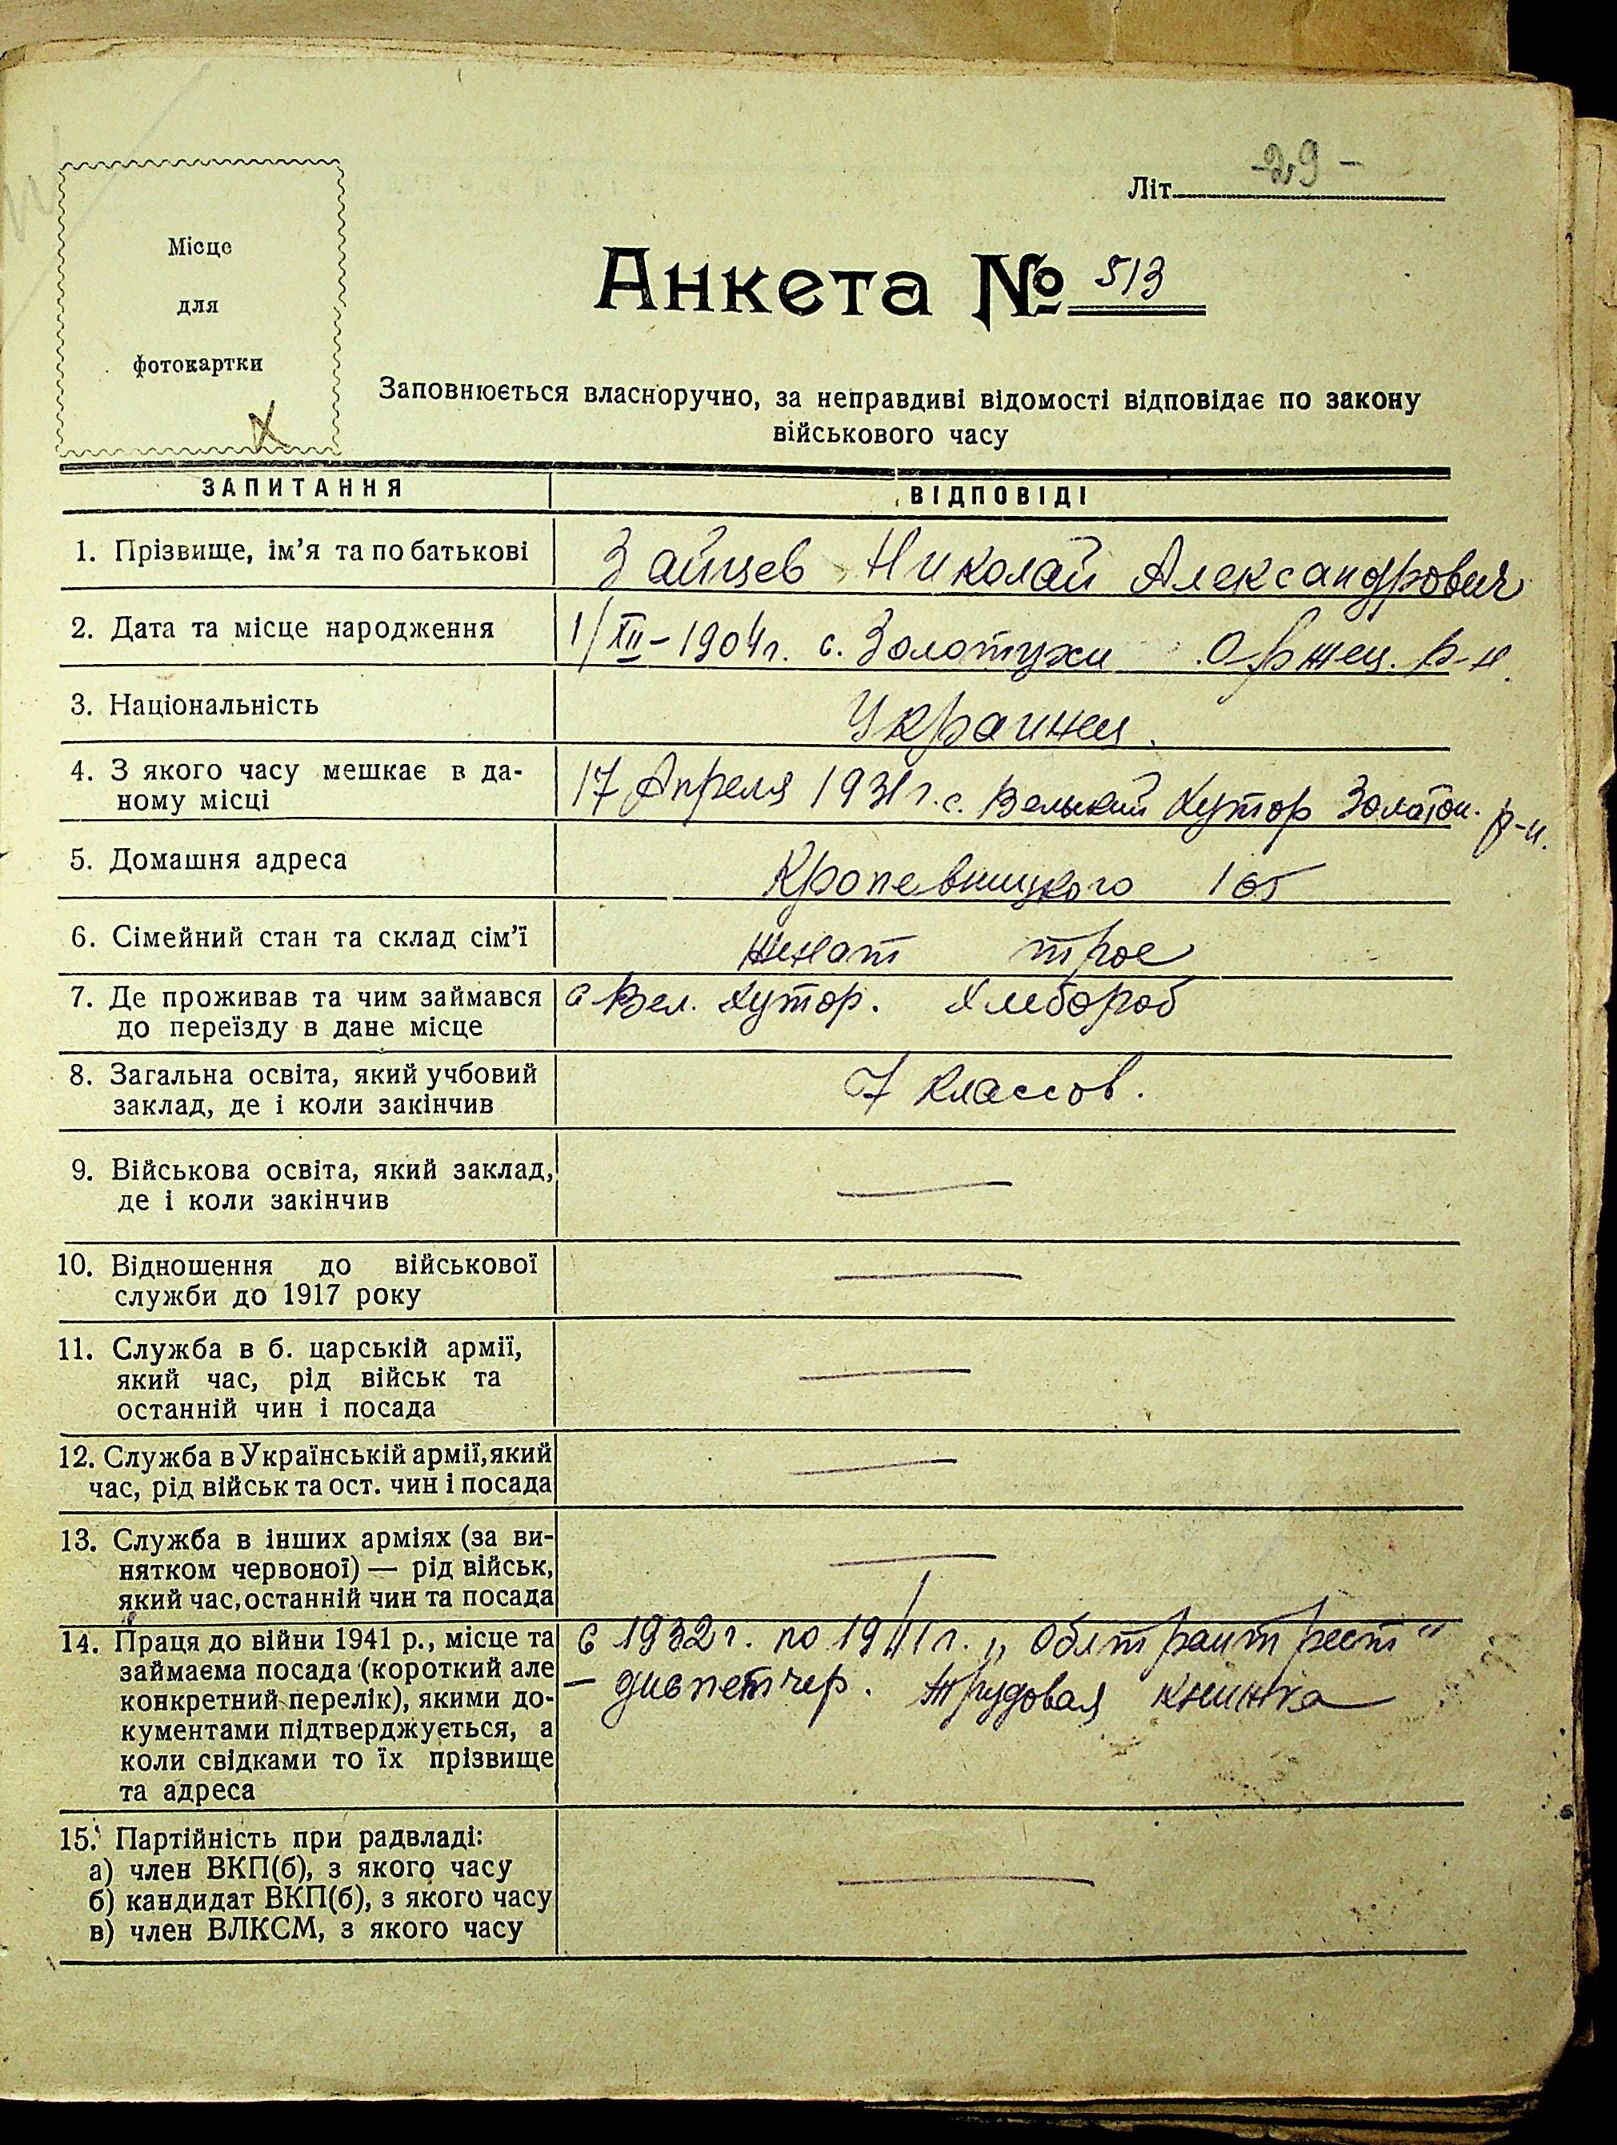 Літ. -29-
Місце
для
фотокартки
Анкета № 513
Заповнюється власноручно, за неправдиві відомості відповідає по закону
військового часу
ЗАПИТАННЯ ВІДПОВІДІ
1. Прізвище, ім'я та по батькові Зайцев Николай Александрович
2. Дата та місце народження 1/XII-1904г. с. Золотухи Оржец. р-н.
3. Національність Украинец.
4. З якого часу мешкає в да-
ному місці 17 Апреля 1931г. с. Великий Хутор Золотон. р-н.
5. Домашня адреса Кропевницкого
6. Сімейний стан та склад сім'ї женат трое
7. Де проживав та чим займався
до переїзду в дане місце с Вел. Хутор. Хлебороб
8. Загальна освіта, який учбовий
заклад, де і коли закінчив 7 классов.
9. Військова освіта, який заклад,
де і коли закінчив —
10. Відношення до військової
служби до 1917 року —
11. Служба в б. царській армії,
який час, рід військ та
останній чин і посада —
12. Служба в Українській армії, який
час, рід військ та ост. чин і посада —
13. Служба в інших арміях (за ви-
нятком червоної) — рід військ,
який час, останній чин та посада —
14. Праця до війни 1941 р., місце та
займаєма посада (короткий але
конкретний перелік), якими до-
кументами підтверджується, а
коли свідками то їх прізвище
та адреса
с 1932г. по 1941г. „Облтрантрест"
– диспетчер. Трудовая книжка
15. Партійність при радвладі:
а) член ВКП(б), з якого часу
б) кандидат ВКП(б), з якого часу
в) член ВЛКСМ, з якого часу —